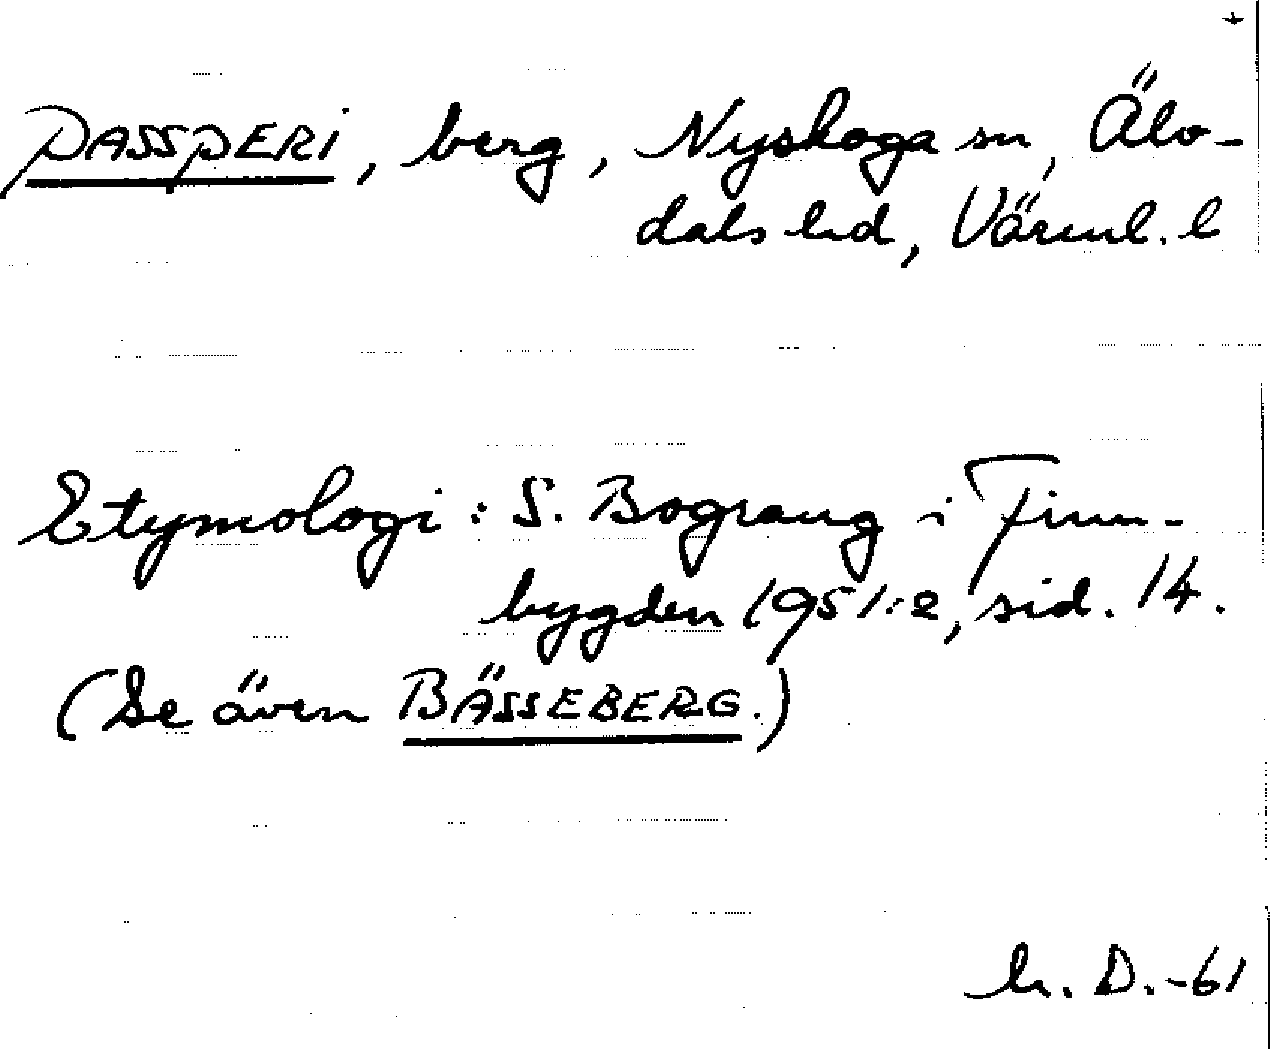 PASSPERI, berg, Nyskoga sn, Älv-
dals hd, Värml. l
Etymologi: S. Bograng i Finn-
bygden 1951:2, sid. 14.
(Se även BÄSSEBERG.)
h. D.-61